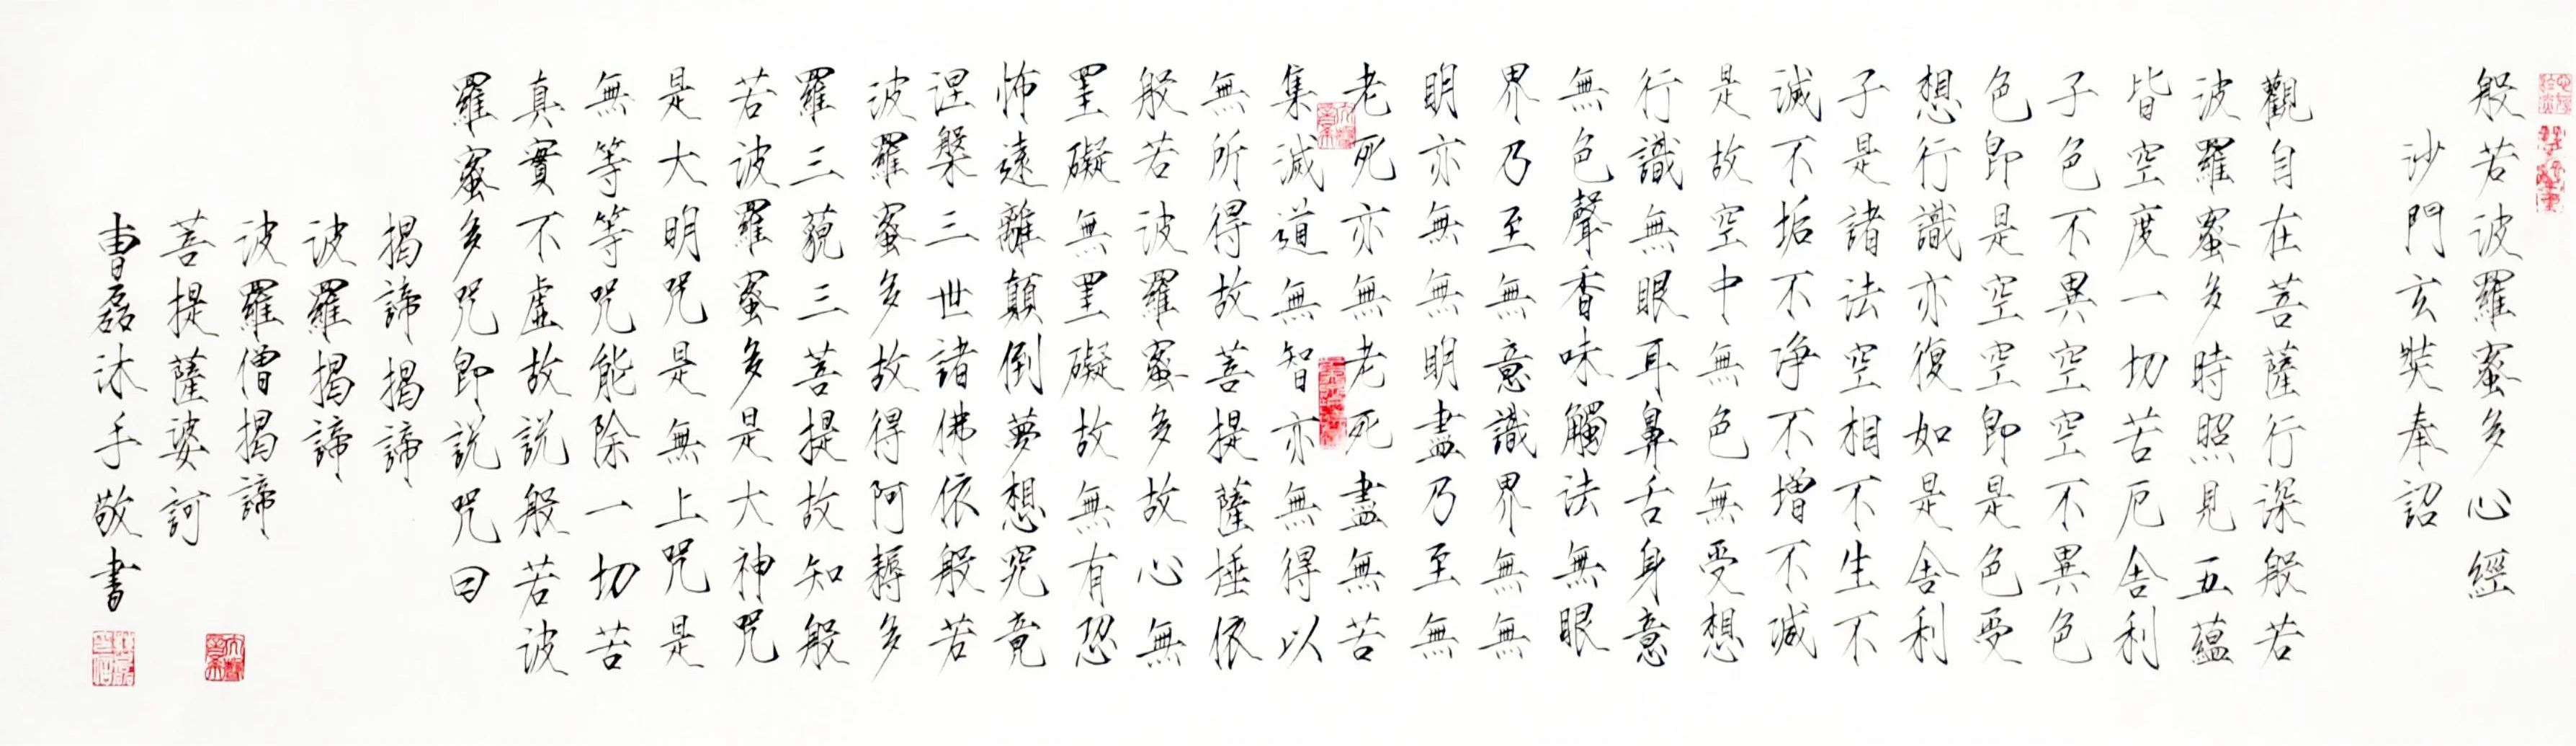 般若波羅蜜多心經
沙門玄奘奉詔
觀自在菩薩行深般若
波羅蜜多時照見五蘊
皆空度一切苦厄舍利
子色不異空空不異色
色即是空空即是色受
想行識亦復如是舍利
子是諸法空相不生不
滅不垢不淨不增不減
是故空中無色無受想
行識無眼耳鼻舌身意
無色聲香味觸法無眼
界乃至無意識界無無
明亦無無明盡乃至無
老死亦無老死盡無苦
集滅道無智亦無得以
無所得故菩提薩埵依
般若波羅蜜多故心無
罣礙無罣礙故無有恐
怖遠離顛倒夢想究竟
涅槃三世諸佛依般若
波羅蜜多故得阿耨多
羅三藐三菩提故知般
若波羅蜜多是大神咒
是大明咒是無上咒是
無等等咒能除一切苦
真實不虛故說般若波
羅蜜多咒即說咒曰
揭諦揭諦
波羅揭諦
波羅僧揭諦
菩提薩婆訶
曹磊沐手敬書